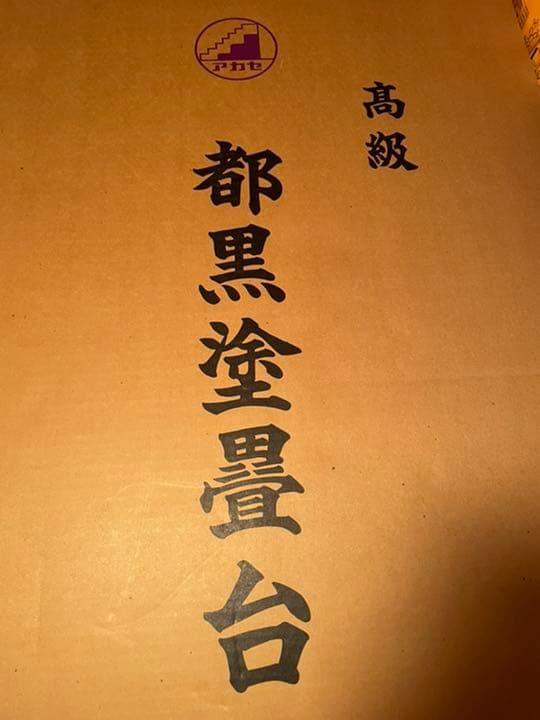 アカセ
高級
都黒塗畳台